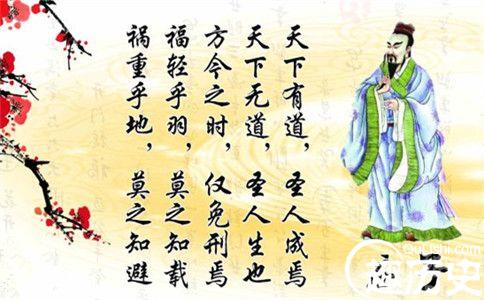 天下有道，圣人成焉
天下无道，圣人生也
方今之时，仅免刑焉
福轻乎羽，莫之知载
祸重乎地，莫之知避
趣历史